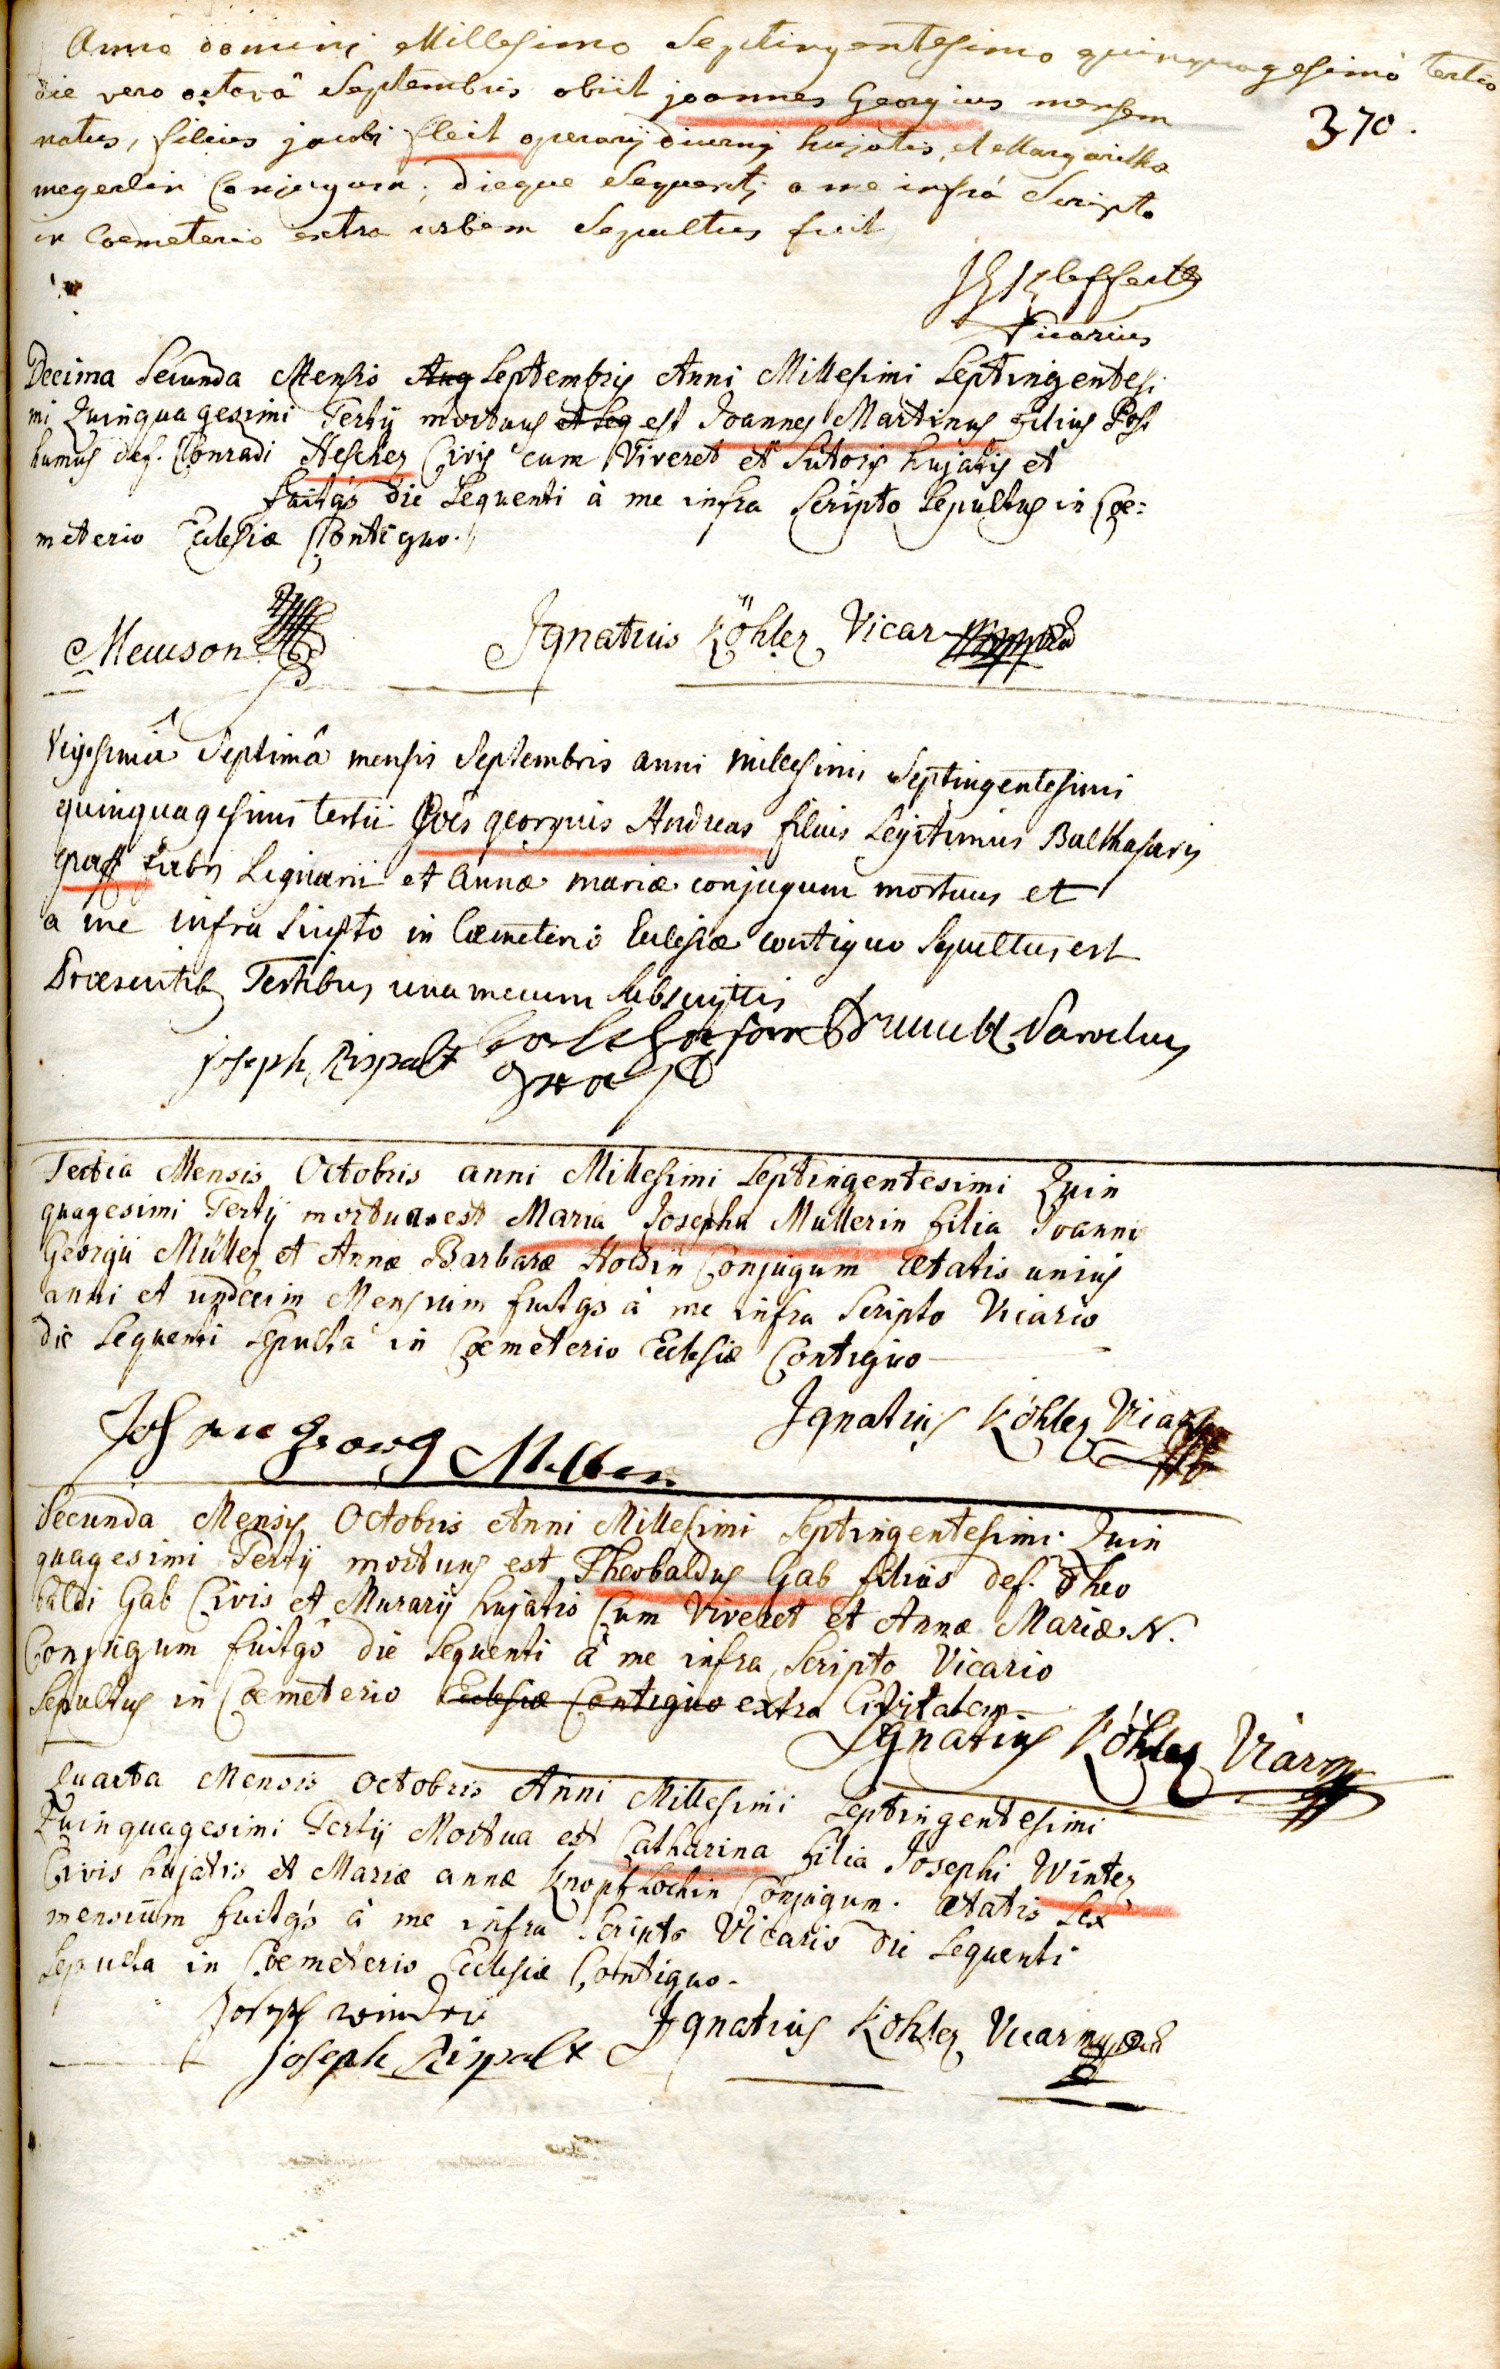 Anno domini Millesimo Septingentesimo quinquagesimo tertio
die vero octavâ Septembris obiit joannes Georgius mensem
370.
natus, filius jacobi fleit operarij diurnj hujatis, et Margaritha
megerlin Conjugum; dieque Sequentj a me infrá Scripto
in Coemeterio extra urbem Sepultus fuit
Vicarius
Decima Secunda Mensis Aug Septembris Anni Millesimi Septingentesi
mi Quinquagesimi Tertij mortuus et seq est Joannes Martinus filius Post
humus def. Conradi Hescher Civis cum Viveret et Sutoris hujatis et
fuitqs die Sequenti à me infra Scripto Sepultus in Coe:
meterio Eclesiæ Contiguo.
Meuson
Ignatius Köhler Vicar
Vigesimâ Septimâ mensis Septembris anni millesimi Septingentesimi
quinquagesimi tertii Joes georgius Andreas filius Legitimus Balthasaris
graff fabri Lignarii et Annæ mariæ conjugum mortuus et
a me infra Scripto in Cæmeterio Eclesiæ contiguo Sepultus est
Præsentib Testibus una mecum Subscriptis
joseph Rispalt
Tertia Mensis Octobris anni Millesimi Septingentesimi Quin
quagesimi Tertij mortua est Maria Josepha Mullerin filia Joannis
Georgii Müller et Annæ Barbaræ Holdin Conjugum ætatis unius
anni et undecim Mensium fuitqs à me infra Scripto Vicario
die Sequenti Sepulta in Cœmeterio Eclesiæ Contiguo
Ignatius Köhler Vicar
Johann georg Müller
Secunda Mensis Octobris Anni Millesimi Septingentesimi Quin
quagesimi Tertij mortuus est Theobaldus Gab filius def. Theo
baldi Gab Civis et Murarij hujatis Cum Viveret et Annæ Mariæ N.
Conjugum fuitqs die Sequenti à me infra Scripto Vicario
Sepultus in Cœmeterio Eclesiæ Contiguo extra Civitatem
Ignatius Köhler Vicarius
Quarta Mensis Octobris Anni Millesimi Septingentesimi
Quinquagesimi Tertij Mortua est Catharina filia Josephi Winter
Civis hujatis et Mariæ annæ Knopflochin Conjugum. ætatis Sex
mensium fuitqs à me infra Scripto Vicario die Sequenti
Sepulta in Cœmeterio Eclesiæ Contiguo.
Joseph winder
Ignatius Köhler Vicarius
joseph Rispalt